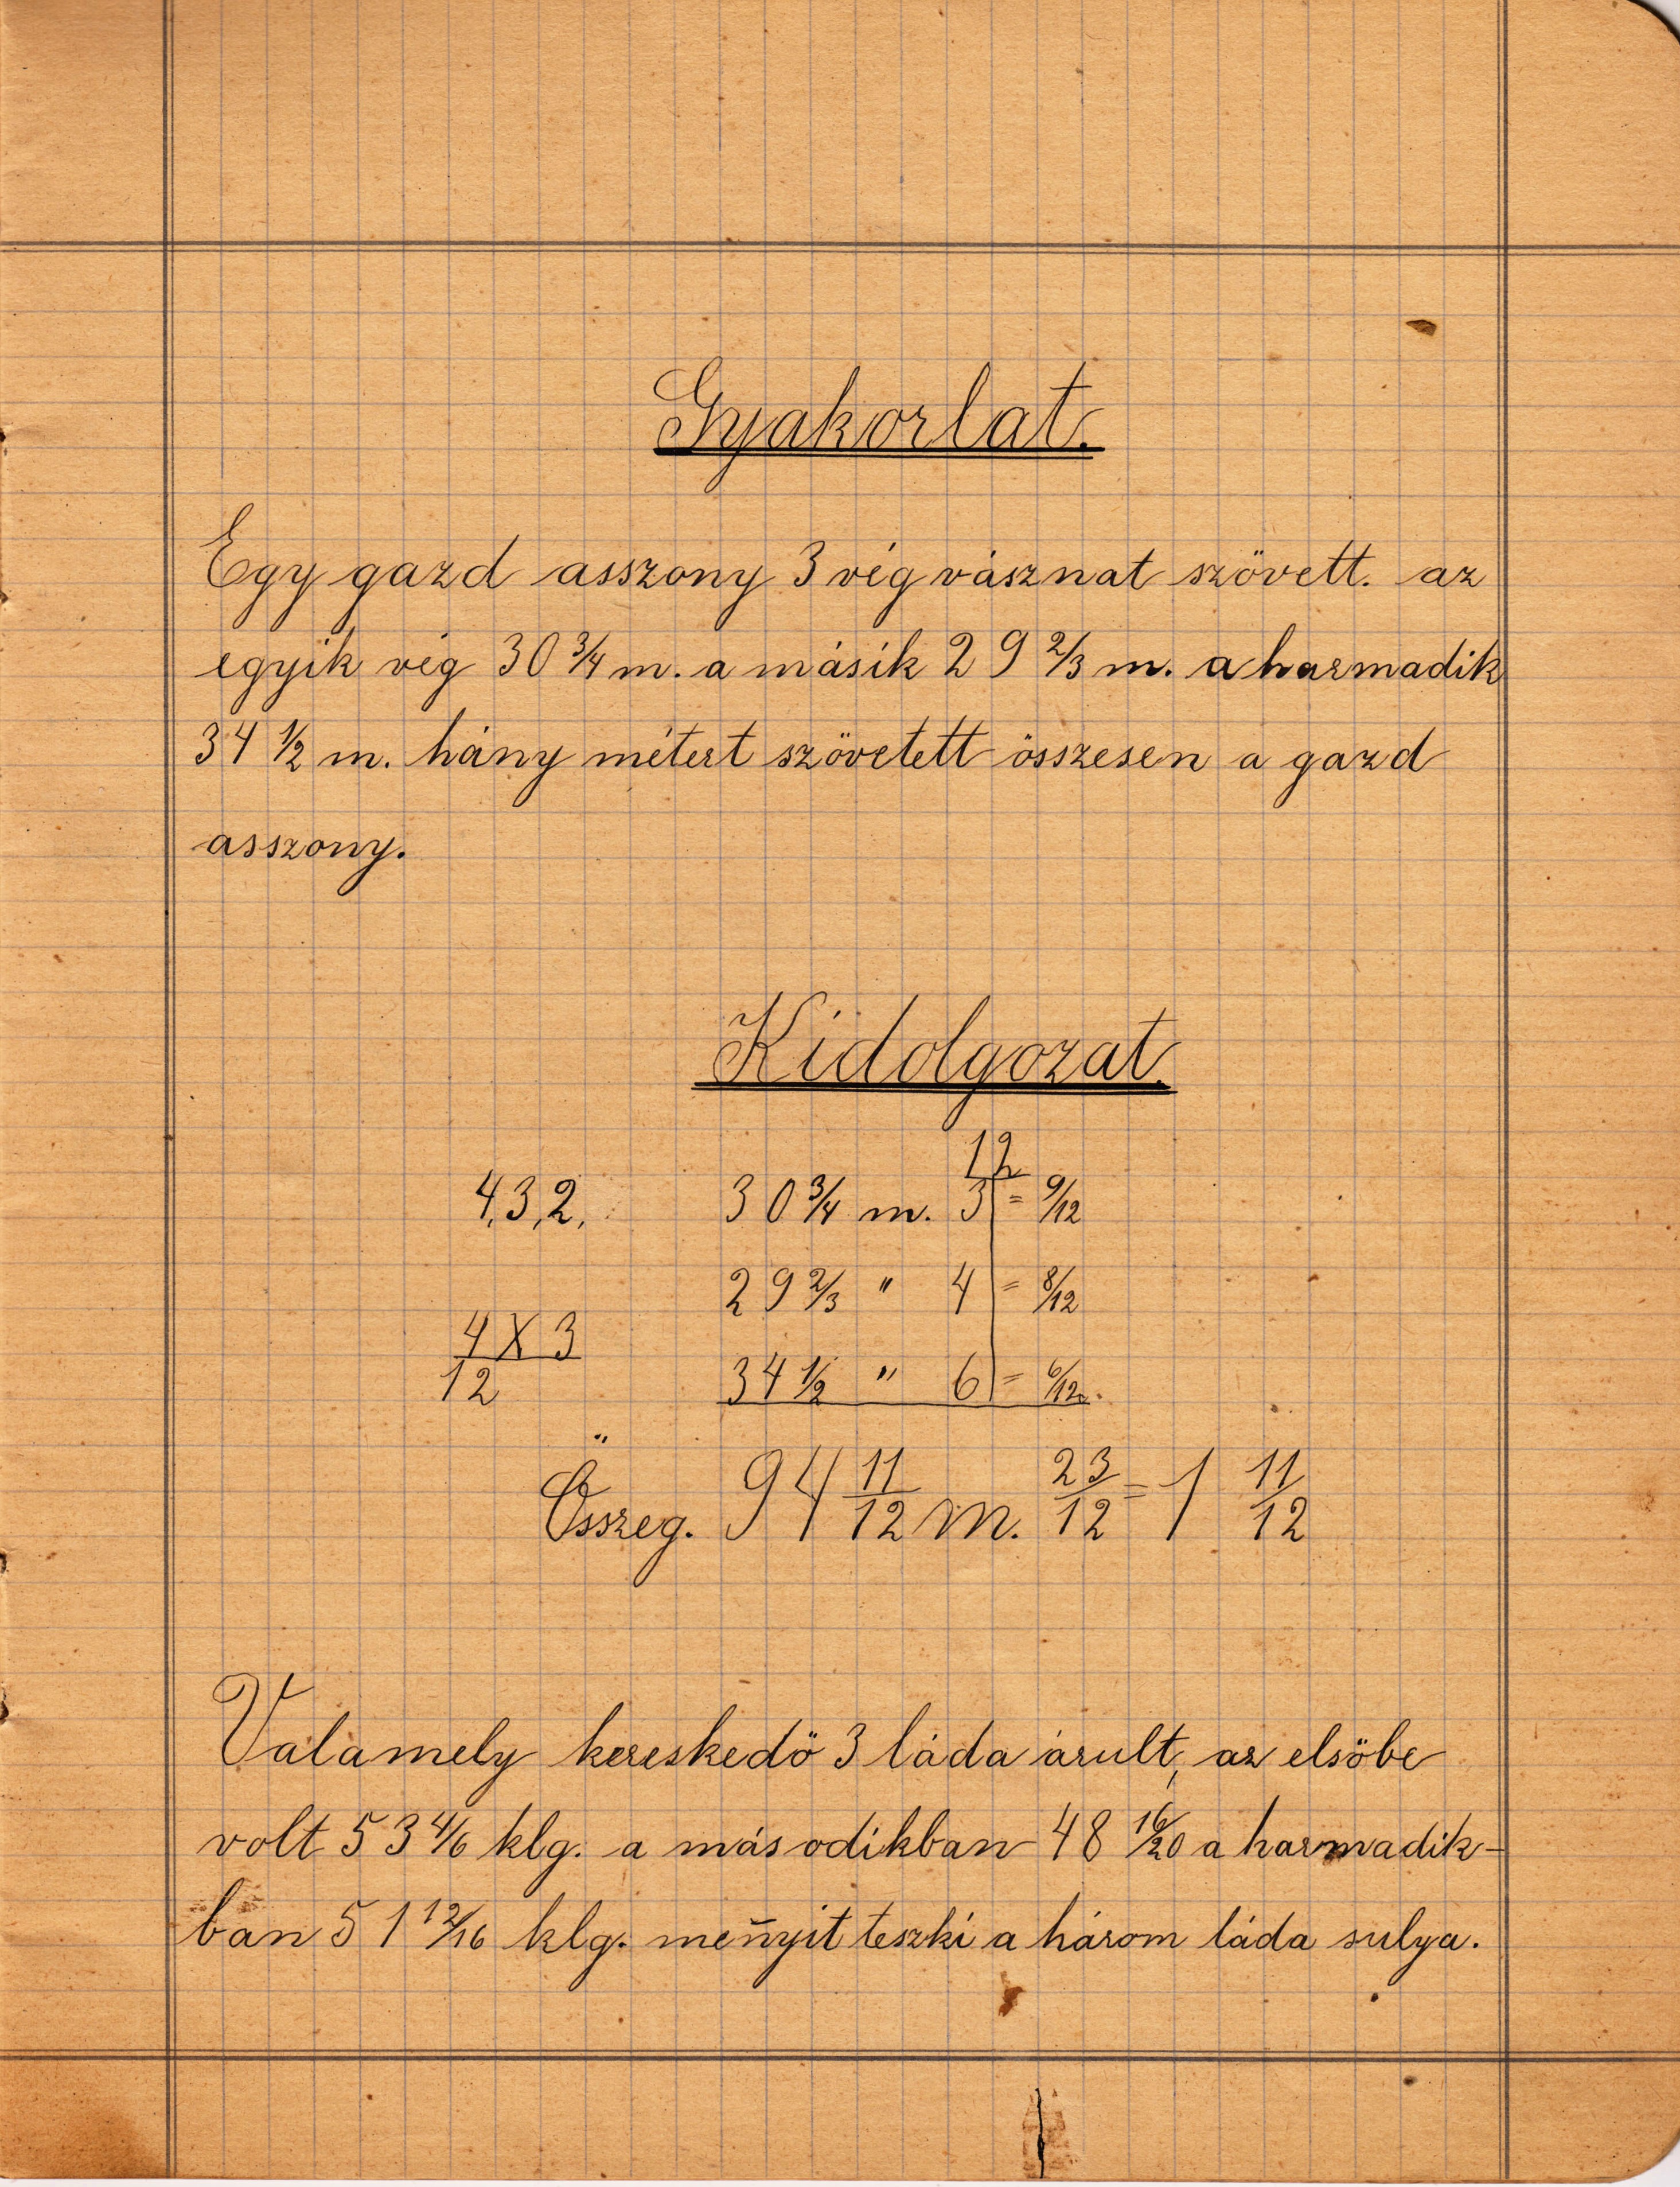 Gyakorlat.
Egy gazd asszony 3 vég vásznat szövett. az
egyik vég 30 3/4 m. a másik 29 2/3 m. a harmadik
34 1/2 m. hány métert szövetett összesen a gazd
asszony.
Kidolgozat.
12
4,3,2, 30 3/4 m. 3 = 9/12
29 2/3 " 4 = 8/12
4 X 3
12 34 1/2 " 6 = 6/12.
Összeg. 94 11/12 m. 23/12 = 1 11/12
Valamely kereskedö 3 láda árult, az elsöbe
volt 53 4/6 klg. a másodikban 48 16/20 a harmadik-
ban 51 12/16 klg. men̄yit teszki a három láda sulya.